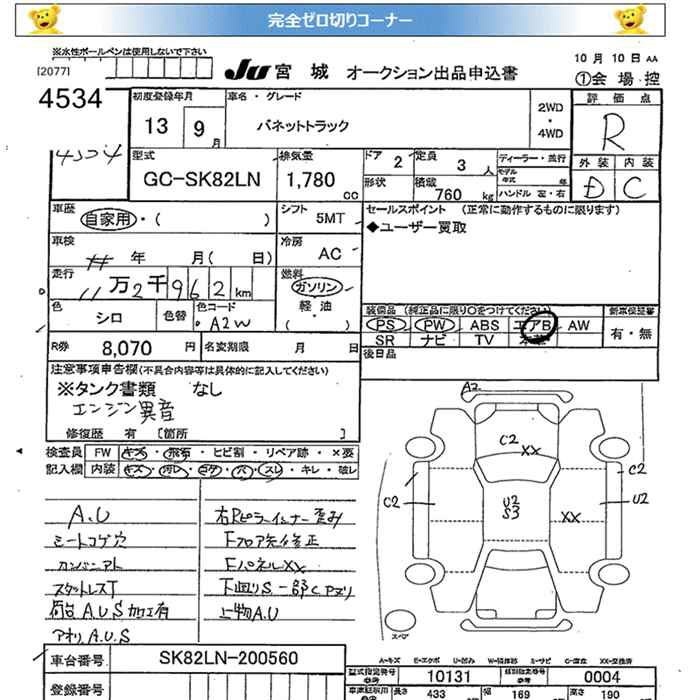 完全ゼロ切りコーナー
※水性ボールペンは使用しないで下さい
[2077]
JU 宮 城 オークション出品申込書
10 月 10 日 AA
①会 場 控
4534
初度登録年月
車名・グレード
13 9 月
バネットトラック
2WD
・
4WD
評 価 点
R
4534
型式
GC-SK82LN
排気量
1,780 cc
ドア 2
定員 3 人
形状
積載 760 kg
ディーラー・並行
モデル年式 年
ハンドル 左・右
外 装
内 装
D
C
車歴
自家用・( )
シフト 5MT
セールスポイント (正常に動作するものに限ります)
◆ユーザー買取
車検
年 月( 日)
冷房 AC
走行
11万2千962km
燃料
ガソリン
軽 油
( )
色
シロ
色替
色コード
A2W
装備品 (純正品に限り○をつけてください)
新車保証書
PS PW ABS エアB AW
SR ナビ TV 本革
有・無
R券 8,070 円
名変期限 月 日
後日品
注意事項申告欄(不具合内容等は具体的に記入してください)
※タンク書類 なし
エンジン異音
修復歴 有 [箇所 ]
検査員 FW キズ・飛石・ヒビ割・リペア跡・×要
記入欄 内装 キズ・汚レ・コゲ・穴・スレ・キレ・破レ
A2
C2
XX
C2
C2
U2
S3
XX
U2
A.U
右Rピラーインナー歪み
シートコゲ穴
Fフロア先修正
スタットレスT
FパネルXX
荷台A.U.S加工有
アオリA.U.S
上物A.U
スペア
車台番号 SK82LN-200560
A-キズ E-エクボ U-凹み W-補修跡 S-サビ C-腐食 XX-交換済
登録番号
型式指定番号 参考
10131
類別区分番号 参考
0004
長さ 433
幅 169
高さ 190